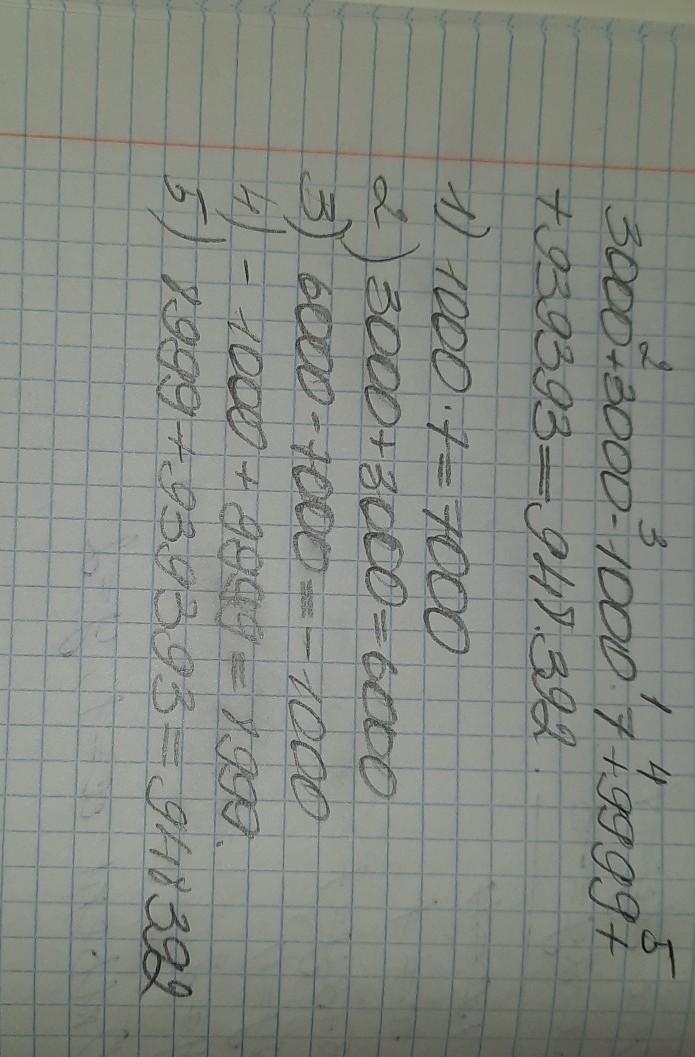 2 3 1 4 5
3000+3000-1000·7+9999+
+939393=948.392.
1) 1000·7=7000
2) 3000+3000=6000
3) 6000-7000=-1000
4) -1000+9999=8999.
5) 8999+939393=948392